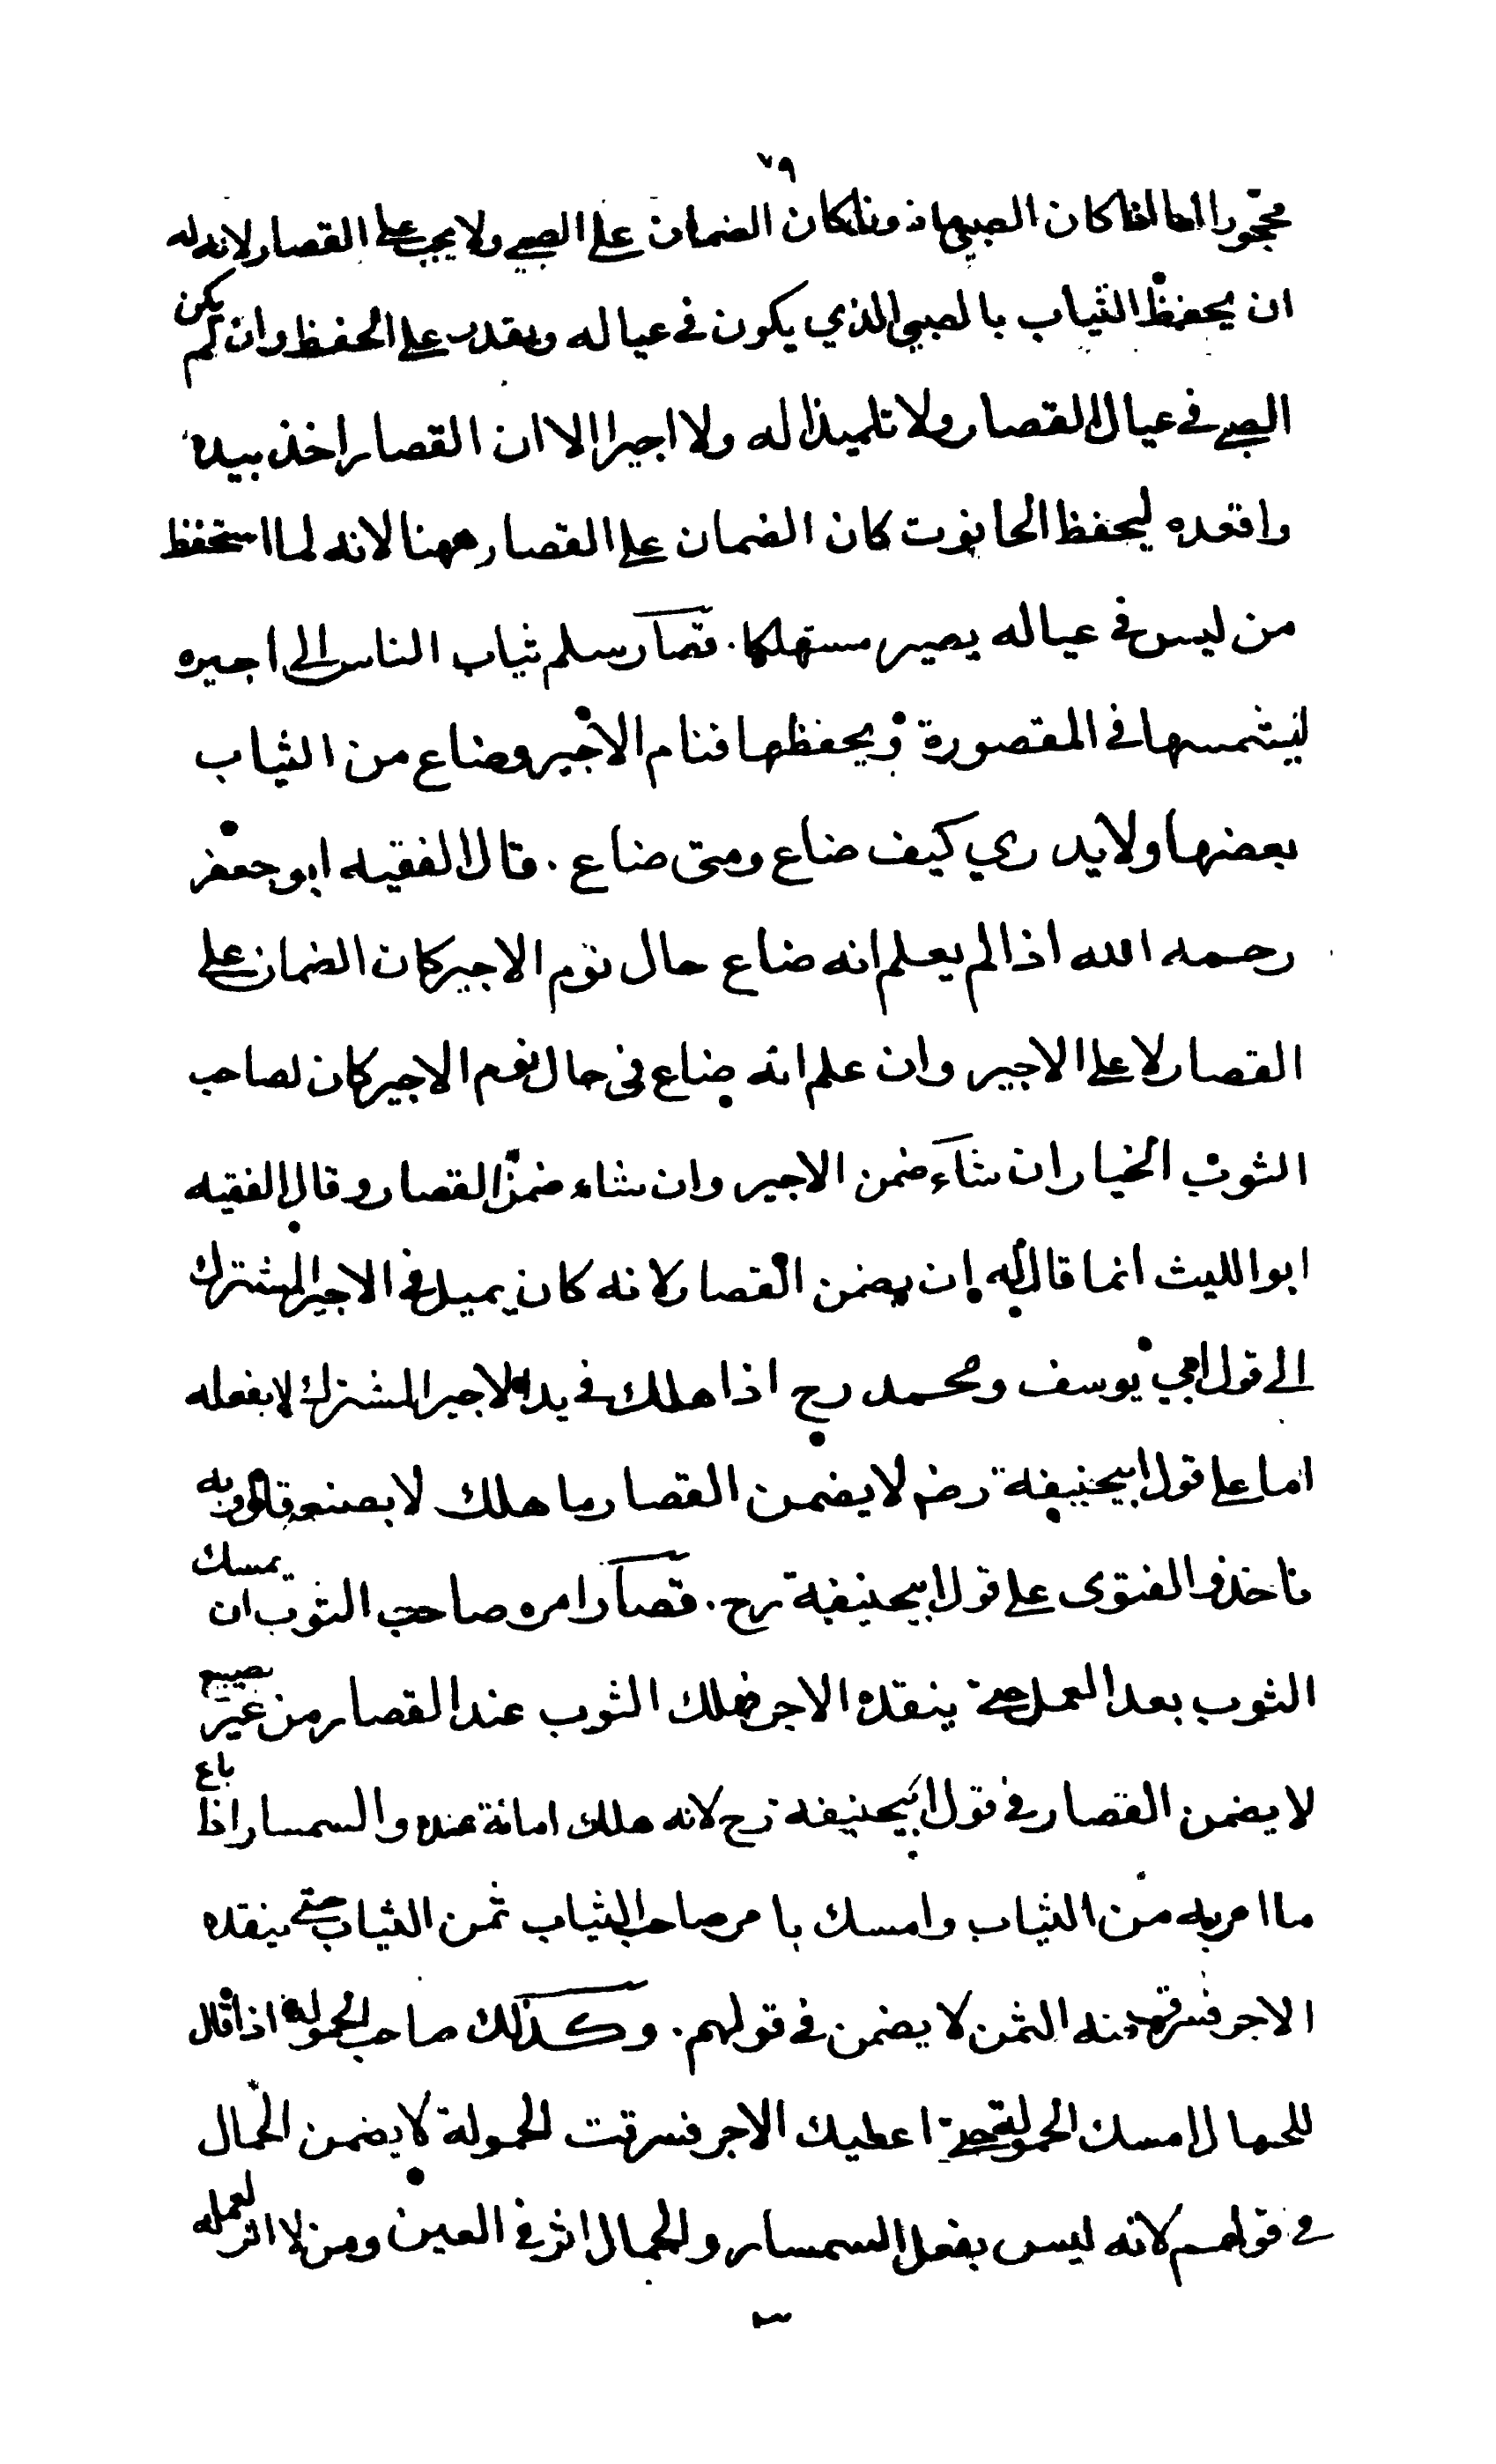 ٧٩
محجورا اما اذا كان الصبي ماذونا كان الضمان على الصبي ولا يجب على القصار لانه له
ان يحفظ الثياب بالصبي الذي يكون في عياله ويقدر على الحفظ وان لم يكن
الصبي في عيال القصار ولا تلميذا له ولا اجيرا الا ان القصار اخذ بيده
واقعده ليحفظ الحانوت كان الضمان على القصار ههنا لانه لما استحفظ
من ليس في عياله يصير مستهلكا. قصار سلم ثياب الناس الى اجيره
ليشمسها في المقصورة ويحفظها فنام الاجير وضاع من الثياب
بعضها ولا يدري كيف ضاع ومتى ضاع. قال الفقيه ابو جعفر
رحمه الله اذا لم يعلم انه ضاع حال نوم الاجير كان الضمان على
القصار لا على الاجير وان علم انه ضاع في حال نوم الاجير كان لصاحب
الثوب الخيار ان شاء ضمن الاجير وان شاء ضمن القصار وقال الفقيه
ابو الليث انما قال له ان يضمن القصار لانه كان يميل في الاجير المشترك
الى قول ابي يوسف ومحمد رح اذا هلك في يد الاجير المشترك لا بفعله
اما على قول ابيحنيفة رضه لا يضمن القصار ما هلك لا بصنعه قال وبه
ناخذ والفتوى على قول ابيحنيفة رح. قصار امره صاحب الثوب ان يمسك
الثوب بعد العمل حتى ينقده الاجر فهلك الثوب عند القصار من غير تضييع
لا يضمن القصار في قول ابيحنيفة رح لانه هلك امانة عنده والسمسار اذا باع
ما امر به من الثياب وامسك بامر صاحب الثياب ثمن الثياب حتى ينقده
الاجر فسرق منه الثمن لا يضمن في قولهم. وكذلك صاحب الحمولة اذا قال
للحمال امسك الحمولة حتى اعطيك الاجر فسرقت الحمولة لا يضمن الحمال
في قولهم لانه ليس بفعل السمسار والحمال اثر في العين ومن لا اثر لعمله